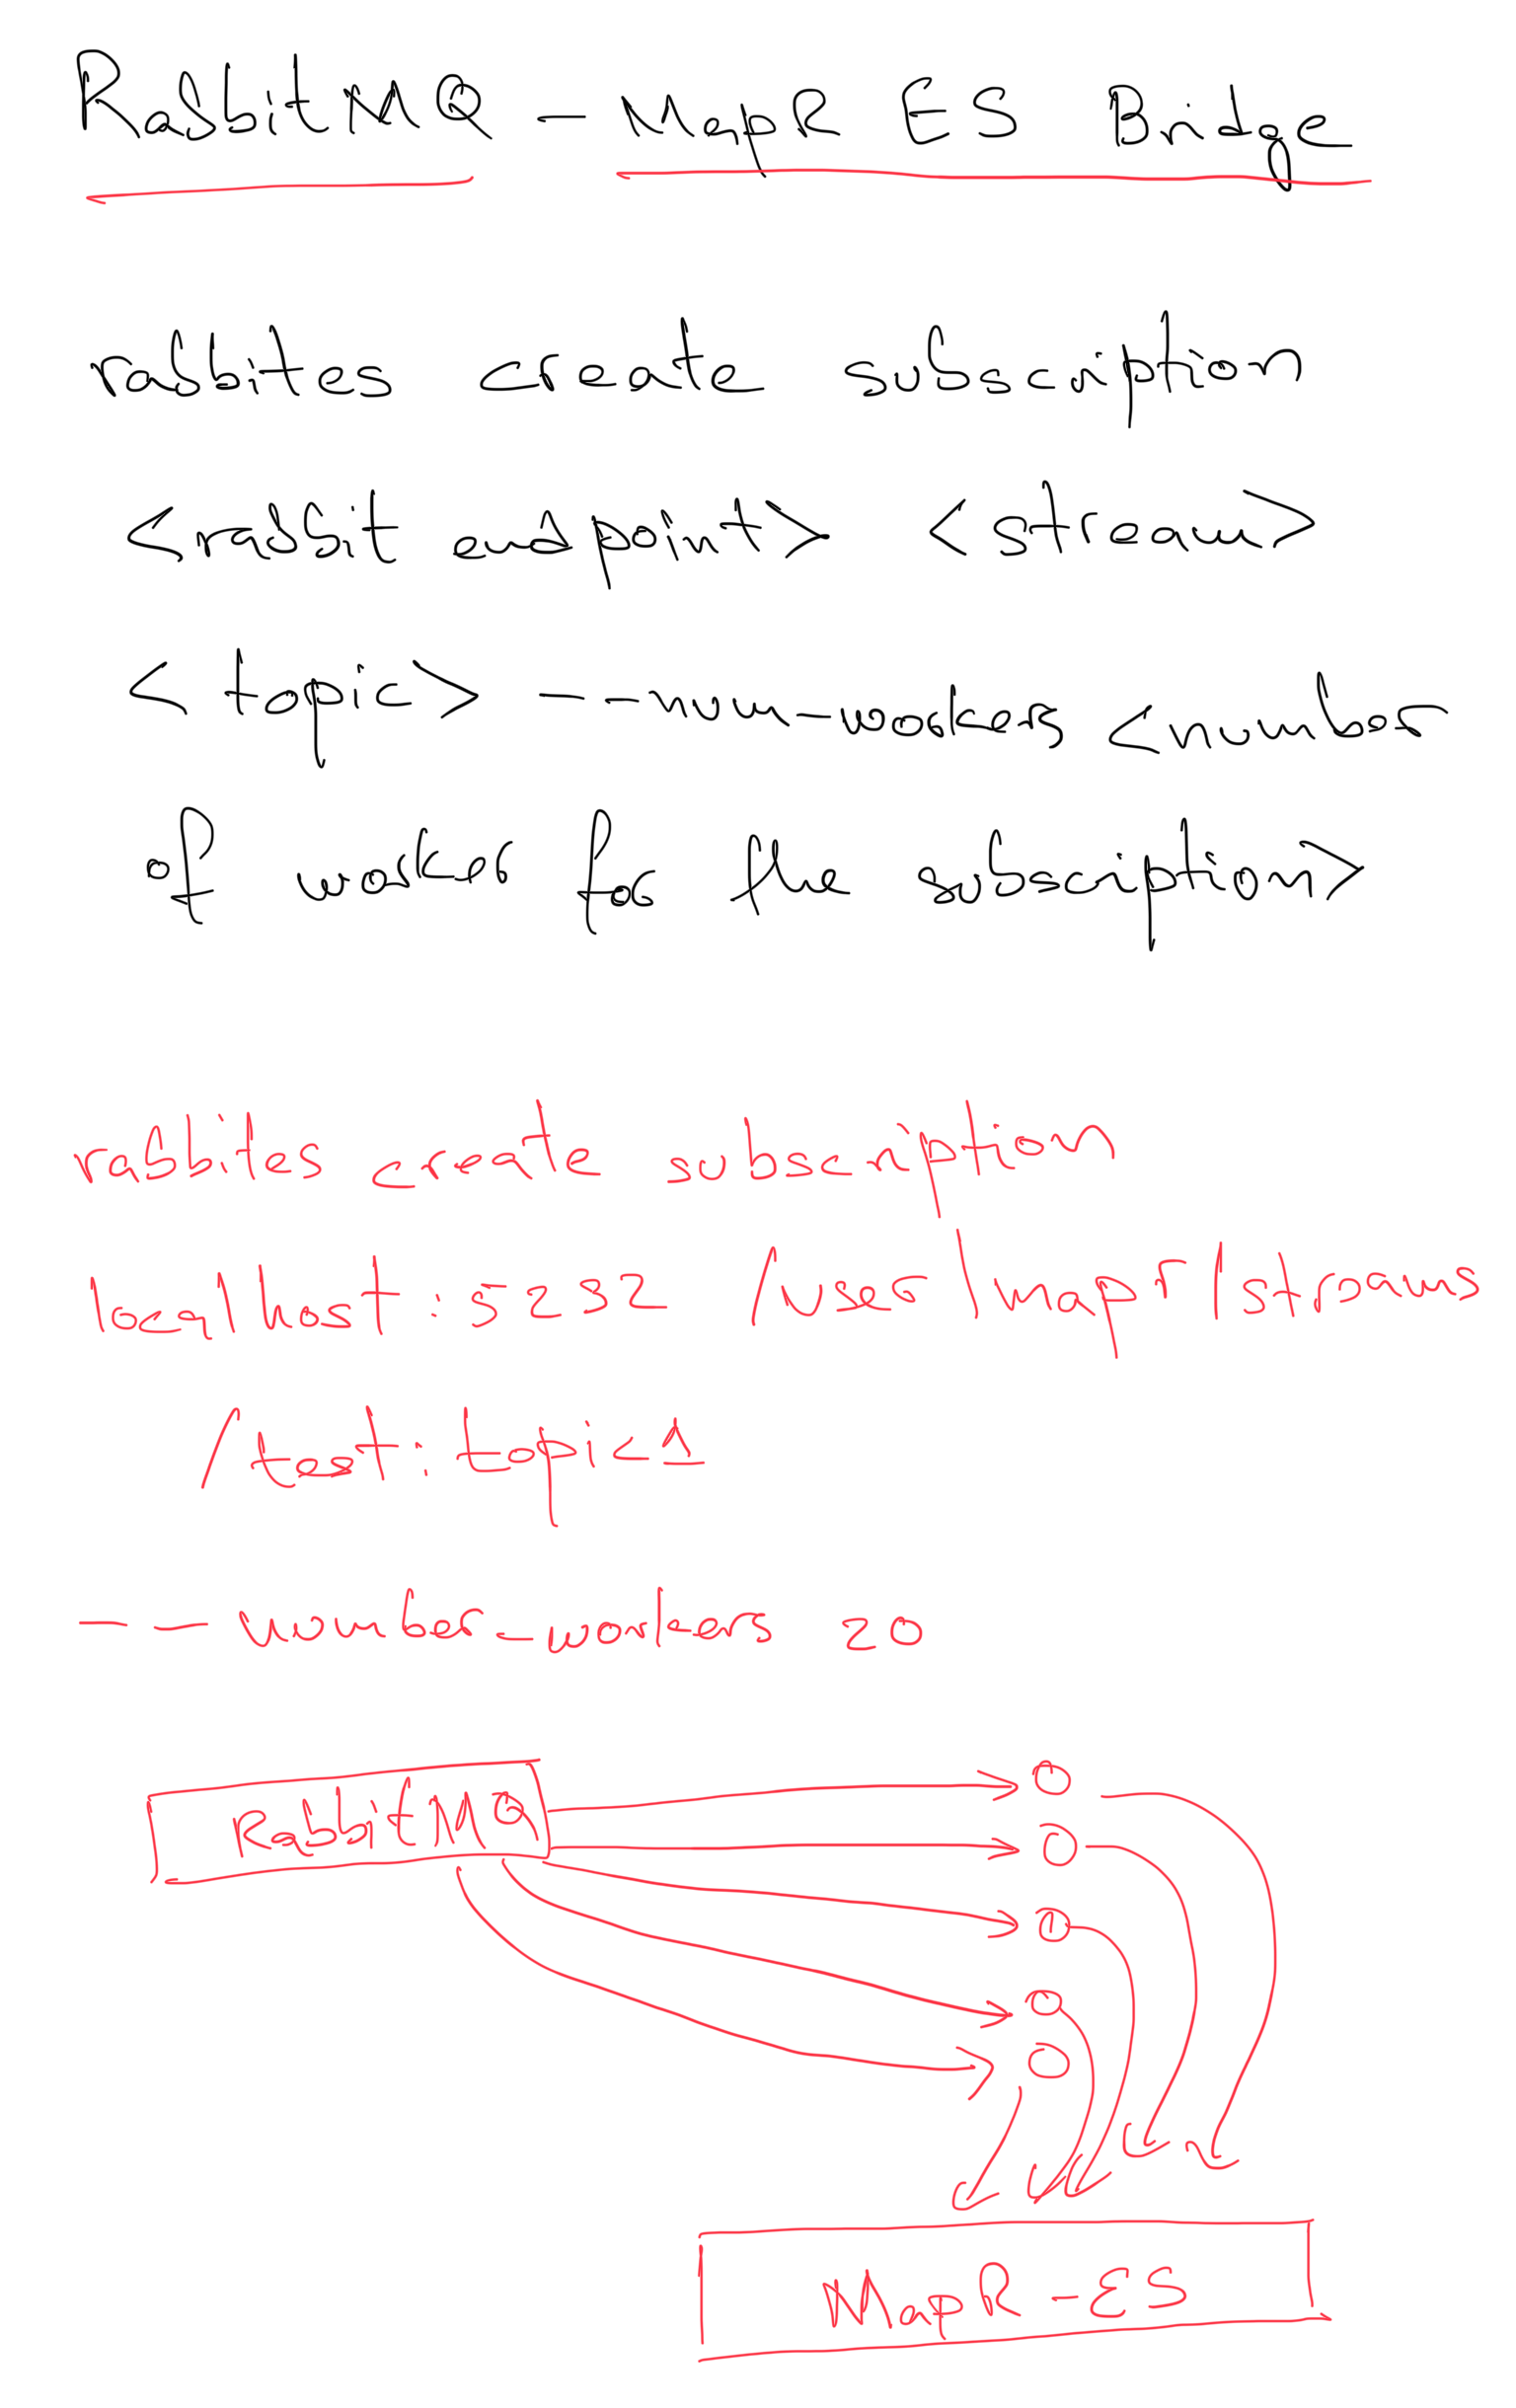 RabbitMQ - MapR ES Bridge
rabbites create subscription
<rabbit endpoint> <stream>
<topic> --num-workers <number
of worker for the subscription>
rabbites create subscription
localhost:5232 /user/mapr/streams
/test:topic1
--number-workers 20
RabbitMQ
MapR-ES